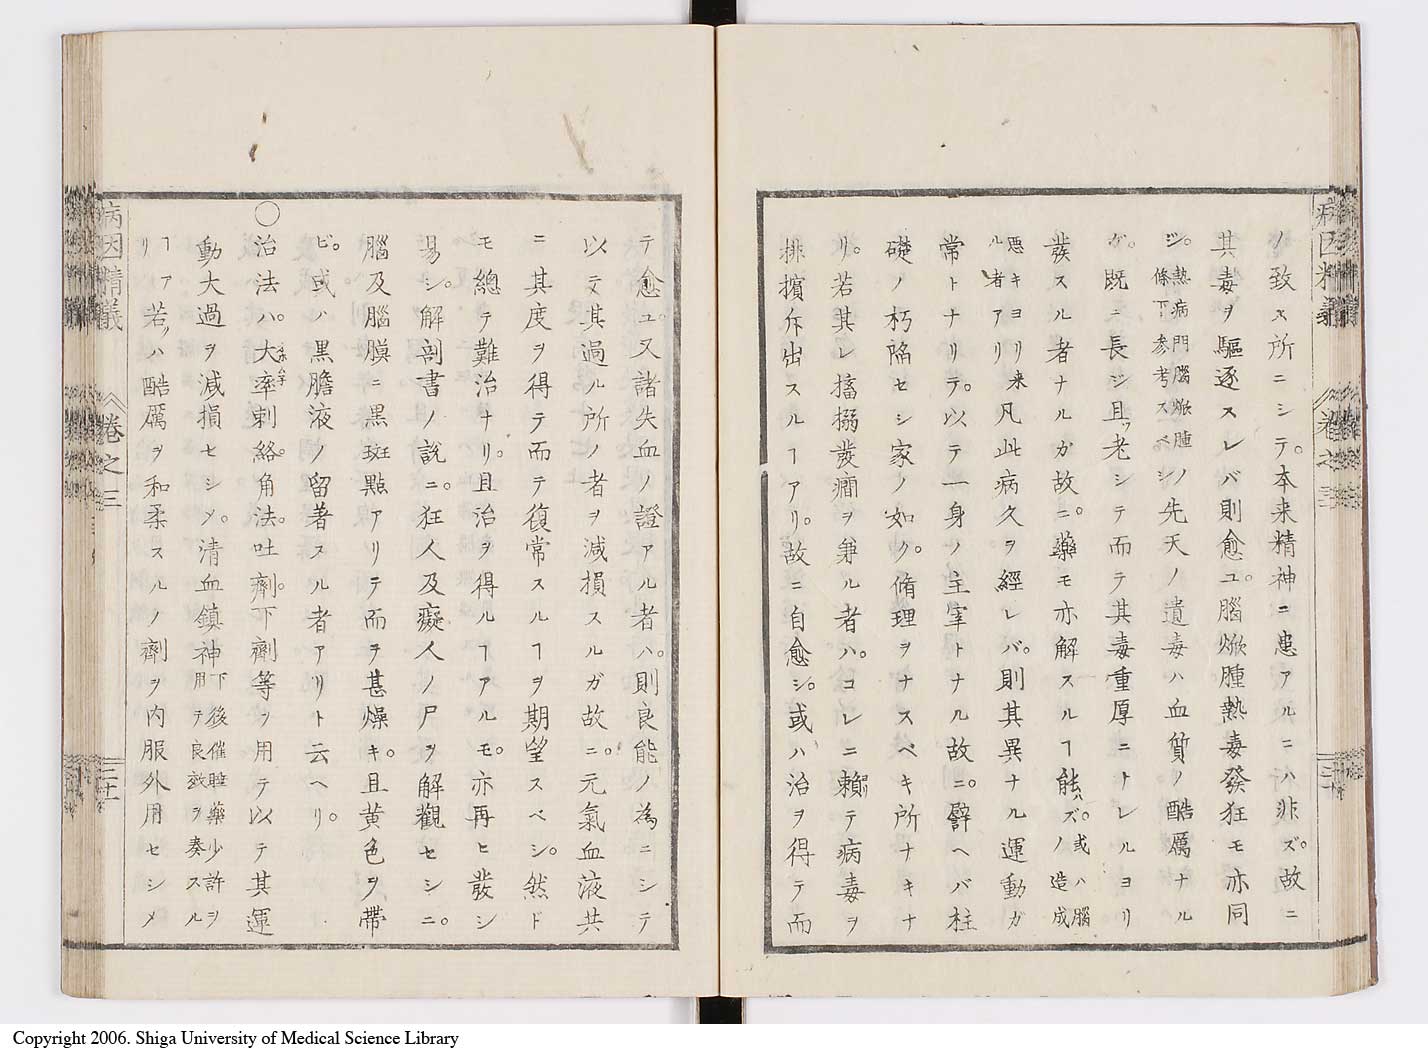 病因精義
卷之三
ノ致ス所ニシテ。本来精神ニ患アルニハ非ズ。故ニ
其毒ヲ驅逐スレバ則愈ユ。腦焮腫熱毒發狂モ亦同
ジ。熱病門腦焮腫ノ條下參考スベシ先天ノ遺毒ハ血質ノ酷厲ナル
ガ。既ニ長ジ且ツ老シテ而テ其毒重厚ニトレルヨリ
發スル者ナルガ故ニ。藥モ亦解スルヿ能ハズ。或ハ腦ノ造成
悪キヨリ来ル者アリ凡此病久ヲ經レバ。則其異ナル運動ガ
常トナリテ。以テ一身ノ主宰トナル故ニ。譬ヘバ柱
礎ノ朽陥セシ家ノ如ク。脩理ヲナスベキ所ナキナ
リ。若其レ搐搦發癎ヲ兼ル者ハ。コレニ賴テ病毒ヲ
排擯斥出スルヿアリ。故ニ自愈シ。或ハ治ヲ得テ而
テ愈ユ。又諸失血ノ證アル者ハ。則良能ノ為ニシテ
以テ其過ル所ノ者ヲ減損スルガ故ニ。元氣血液共
ニ其度ヲ得テ而テ復常スルヿヲ期望スベシ。然ド
モ總テ難治ナリ。且治ヲ得ルヿアルモ。亦再ヒ發シ
易シ。解剖書ノ説ニ。狂人及癡人ノ尸ヲ解觀セシニ。
腦及腦膜ニ黒斑點アリテ而ヲ甚燥キ。且黄色ヲ帶
ビ。或ハ黒膽液ノ留著スル者アリト云ヘリ。
〇治法ハ。大率刺絡。角法。吐劑。下劑等ヲ用テ以テ其運
動大過ヲ減損セシメ。清血鎮神下後催睡藥少許ヲ用テ良效ヲ奏スル
ヿアリ若クハ酷厲ヲ和柔スルノ劑ヲ内服外用セシメ
病因精義
卷之三
二十一
Copyright 2006. Shiga University of Medical Science Library